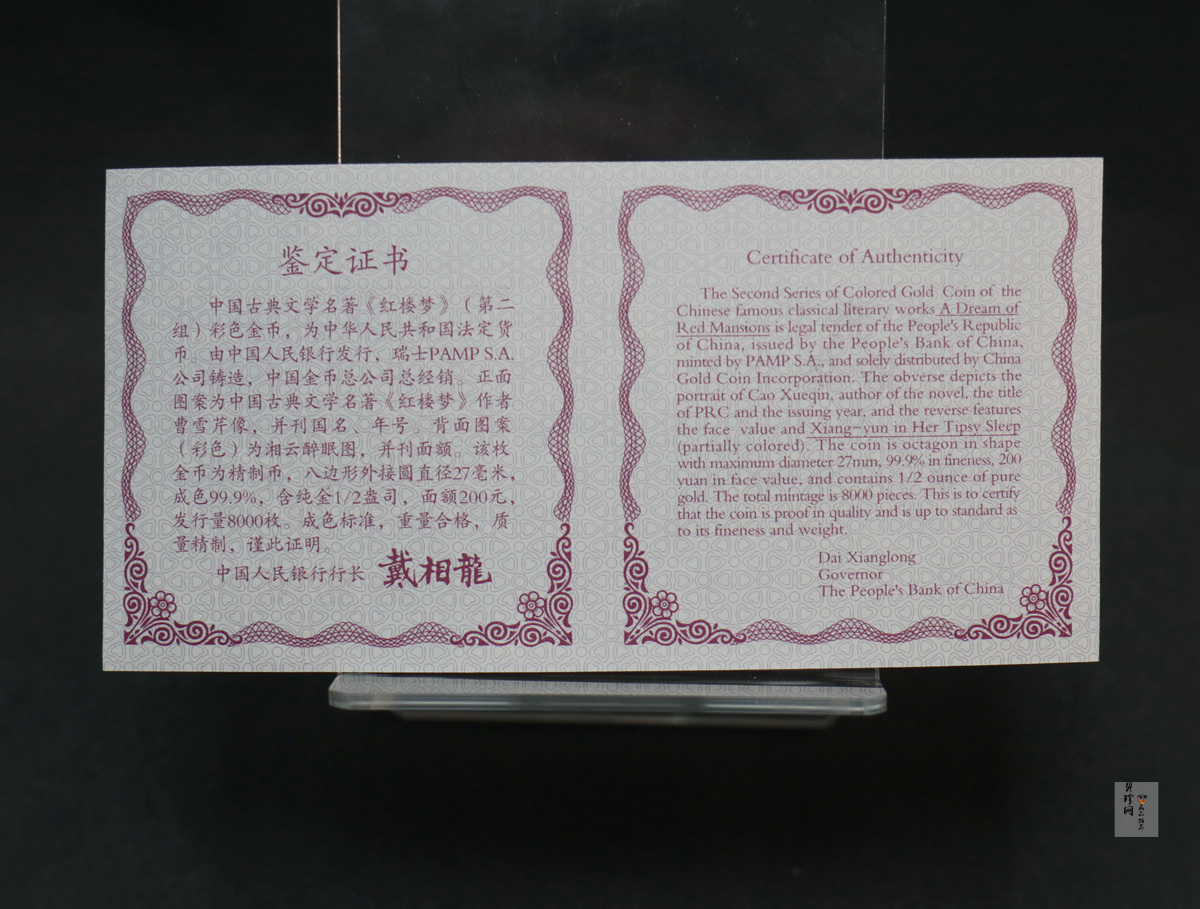 鉴定证书
中国古典文学名著《红楼梦》（第二
组）彩色金币，为中华人民共和国法定货
币。由中国人民银行发行，瑞士PAMP S.A.
公司铸造，中国金币总公司总经销。正面
图案为中国古典文学名著《红楼梦》作者
曹雪芹像，并刊国名、年号。背面图案
（彩色）为湘云醉眠图，并刊面额。该枚
金币为精制币，八边形外接圆直径27毫米，
成色99.9%，含纯金1/2盎司，面额200元，
发行量8000枚。成色标准，重量合格，质
量精制，谨此证明。
中国人民银行行长 戴相龍
Certificate of Authenticity
The Second Series of Colored Gold Coin of the
Chinese famous classical literary works A Dream of
Red Mansions is legal tender of the People's Republic
of China, issued by the People's Bank of China,
minted by PAMP S.A., and solely distributed by China
Gold Coin Incorporation. The obverse depicts the
portrait of Cao Xueqin, author of the novel, the title
of PRC and the issuing year, and the reverse features
the face value and Xiang-yun in Her Tipsy Sleep
(partially colored). The coin is octagon in shape
with maximum diameter 27mm, 99.9% in fineness, 200
yuan in face value, and contains 1/2 ounce of pure
gold. The total mintage is 8000 pieces. This is to certify
that the coin is proof in quality and is up to standard as
to its fineness and weight.
Dai Xianglong
Governor
The People's Bank of China